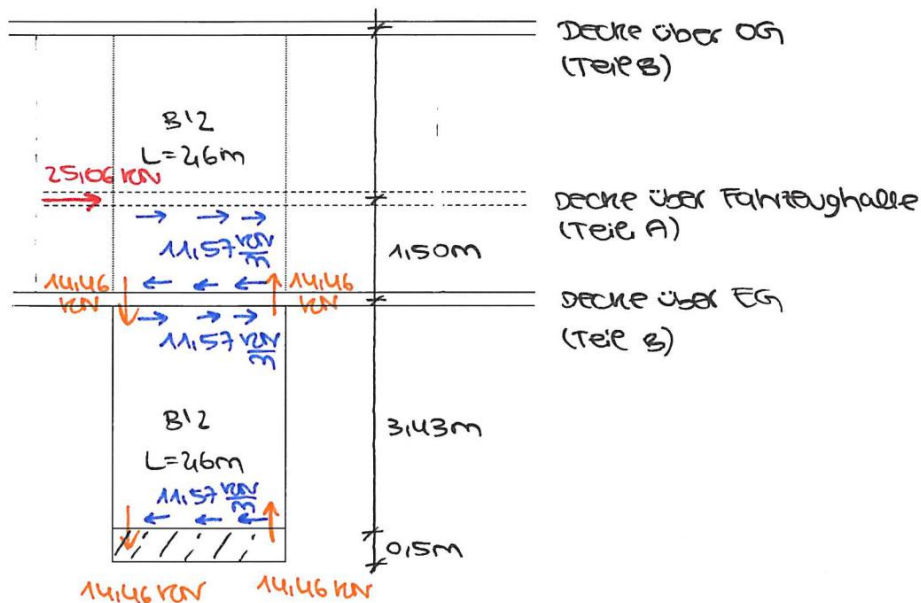 Decke über OG
(Teil B)
B12
L=2,6m
25,06 kN
Decke über Fahrzeughalle
(Teil A)
11,57 kN/m
1,50m
14,46 kN
14,46 kN
Decke über EG
(Teil B)
11,57 kN/m
B12
L=2,6m
3,43m
11,57 kN/m
0,5m
14,46 kN
14,46 kN